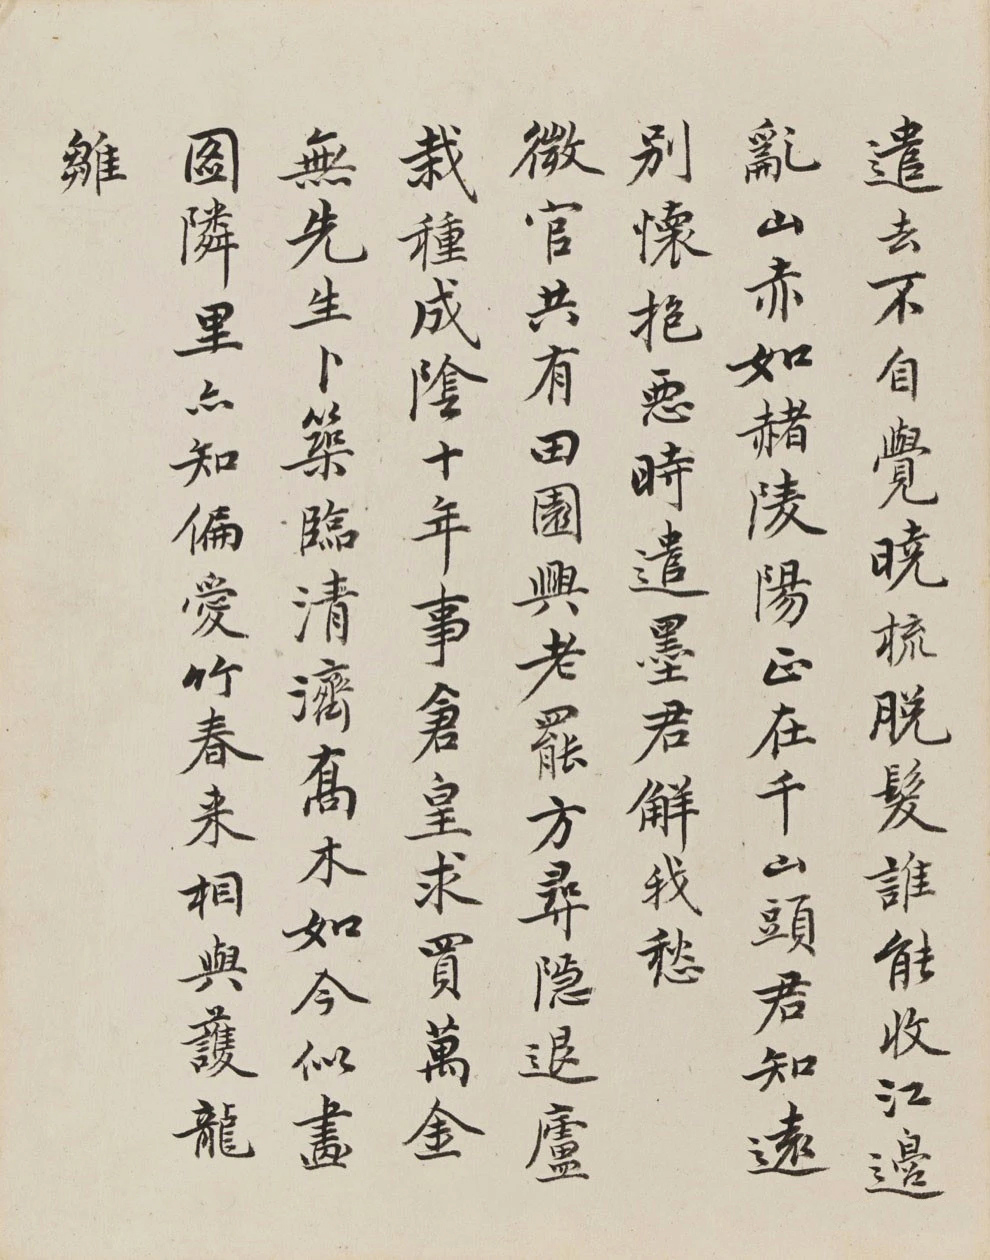 遣去不自覺曉梳脫髮誰能收江邊
亂山赤如赭陵陽正在千山頭君知遠
別懷抱惡時遣墨君解我愁
微官共有田園興老罷方尋隱退廬
栽種成陰十年事倉皇求買萬金
無先生卜築臨清濟喬木如今似畫
圖隣里亦知偏愛竹春来相與護龍
雛